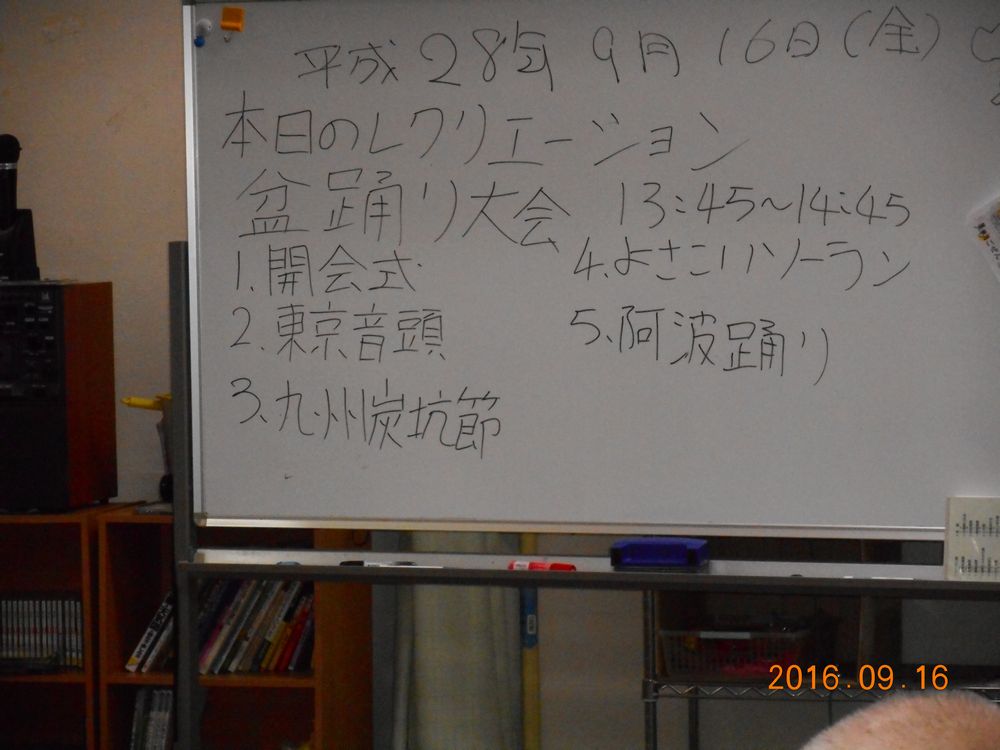 平成28年 9月 16日(金)
本日のレクリエーション
盆踊り大会 13:45~14:45
1.開会式
2.東京音頭
3.九州炭坑節
4.よさこいソーラン
5.阿波踊り
2016.09.16